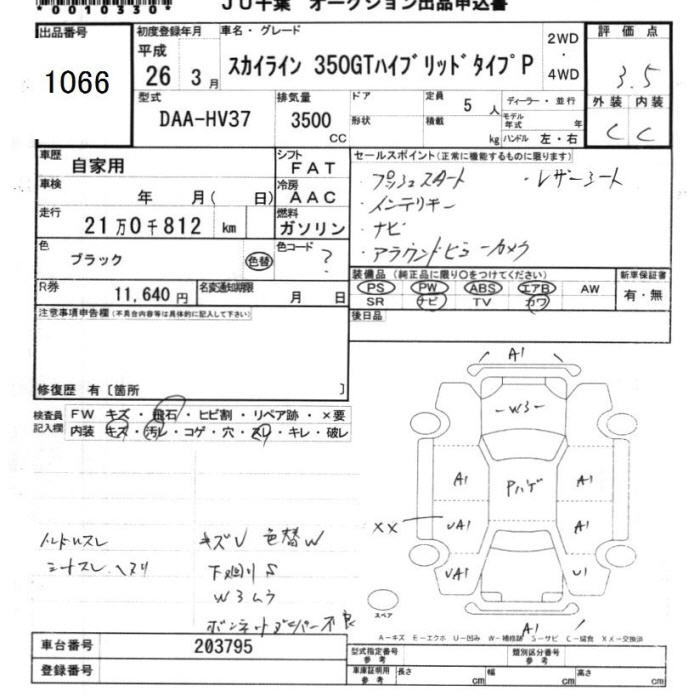 *0010330*
JU千葉 オークション出品申込書
出品番号
1066
初度登録年月
平成
26 3 月
車名・グレード
スカイライン 350GTハイブリッドタイプP
2WD
・
4WD
評価点
3.5
型式
DAA-HV37
排気量
3500
CC
ドア
形状
定員
5 人
積載
kg
ディーラー・並行
モデル年式 年
ハンドル 左・右
外装 内装
C C
車歴
自家用
シフト
FAT
車検
年 月( 日)
冷房
AAC
走行
21万0千812 km
燃料
ガソリン
色
ブラック
色替
色コード
?
R券
11,640円
名変通知期限
月 日
セールスポイント(正常に機能するものに限ります)
・プッシュスタート ・レザーシート
・インテリキー
・ナビ
・アラウンドビューカメラ
装備品(純正品に限り○をつけてください)
新車保証書
PS PW ABS エアB AW
SR ナビ TV カワ
有・無
後日品
注意事項申告欄(不具合内容等は具体的に記入して下さい)
修復歴 有〔箇所 〕
検査員記入欄
FW キズ・飛石・ヒビ割・リペア跡・×要
内装 キズ・汚レ・コゲ・穴・スレ・キレ・破レ
A1
-W3-
A1
Pハゲ
A1
XX
UA1
A1
UA1
U1
A1
スペア
ハンドルスレ
シートスレ、ヘタリ
キズU 色替W
下廻りS
W3ムラ
ボンネットダンパー不良
A-キズ E-エクボ U-凹み W-補修跡 S-サビ C-腐食 XX-交換済
車台番号
203795
登録番号
型式指定番号
参考
類別区分番号
参考
車庫証明用
参考
長さ cm
幅 cm
高さ cm